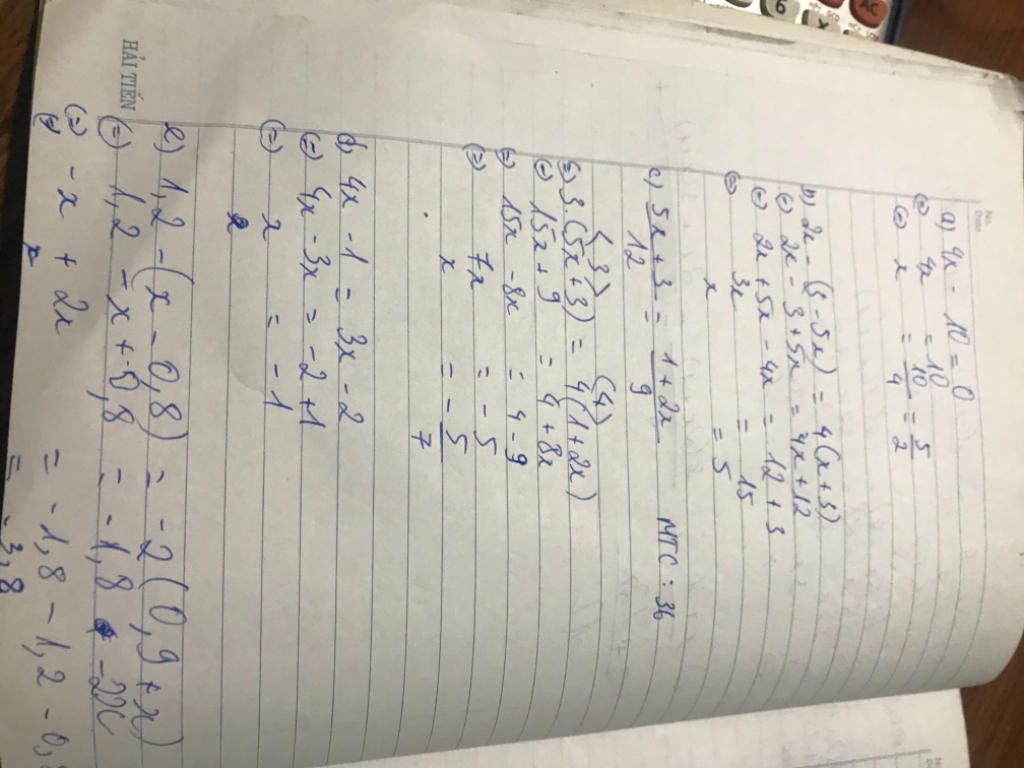 No.
Date
a) 4x - 10 = 0
⇔ 4x = 10
⇔ x = 10/4 = 5/2
b) 2x - (3 - 5x) = 4(x + 3)
⇔ 2x - 3 + 5x = 4x + 12
⇔ 2x + 5x - 4x = 12 + 3
⇔ 3x = 15
x = 5
c) 5x + 3 / 12 = 1 + 2x / 9 MTC : 36
(3) (4)
⇔ 3.(5x + 3) = 4(1 + 2x)
⇔ 15x + 9 = 4 + 8x
⇔ 15x - 8x = 4 - 9
⇔ 7x = - 5
x = - 5/7
d) 4x - 1 = 3x - 2
⇔ 4x - 3x = -2 + 1
⇔ x = -1
e) 1,2 - (x - 0,8) = -2(0,9 + x)
⇔ 1,2 - x + 0,8 = -1,8 - 2x
⇔ - x + 2x = -1,8 - 1,2 - 0,
⇔ x = -3,8
HẢI TIẾN
AC
6